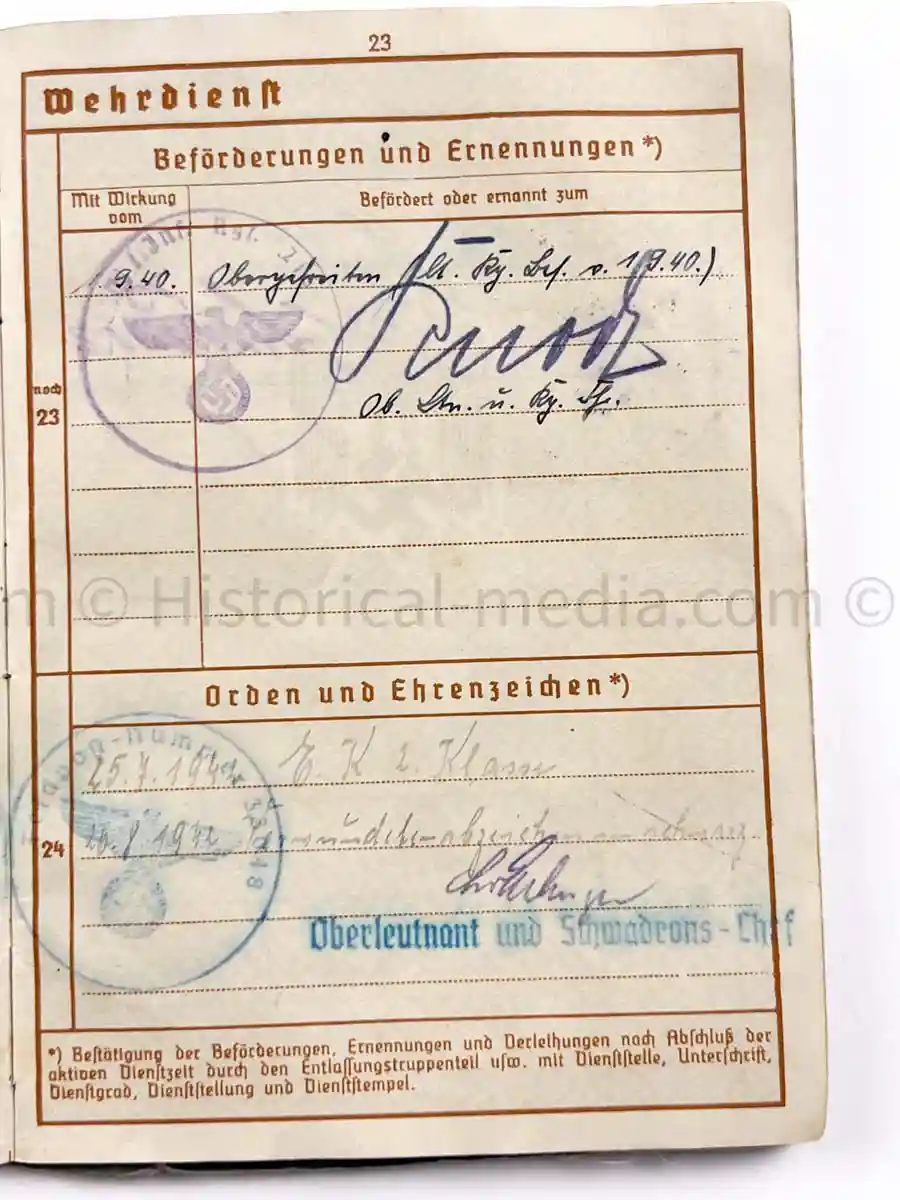 23
Wehrdienst
Beförderungen und Ernennungen *)
Mit Wirkung vom
Befördert oder ernannt zum
1.9.40. Obergefreiten (lt. Kp. Bef. v. 1.9.40.)
Ob. Ltn. u. Kp. Chef.
noch
23
m © Historical-media.com ©
Orden und Ehrenzeichen *)
25.7.1942 E. K 2. Klasse
1942 Verwundetenabzeichen in schwarz
24
Oberleutnant und Schwadrons-Chef
*) Bestätigung der Beförderungen, Ernennungen und Verleihungen nach Abschluß der
aktiven Dienstzeit durch den Entlassungstruppenteil usw. mit Dienststelle, Unterschrift,
Dienstgrad, Dienststellung und Dienststempel.